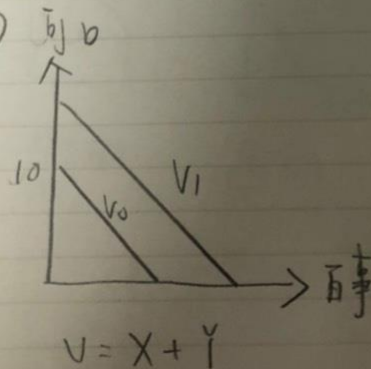 可口
10
V₁
V₀
百事
U = X + Y